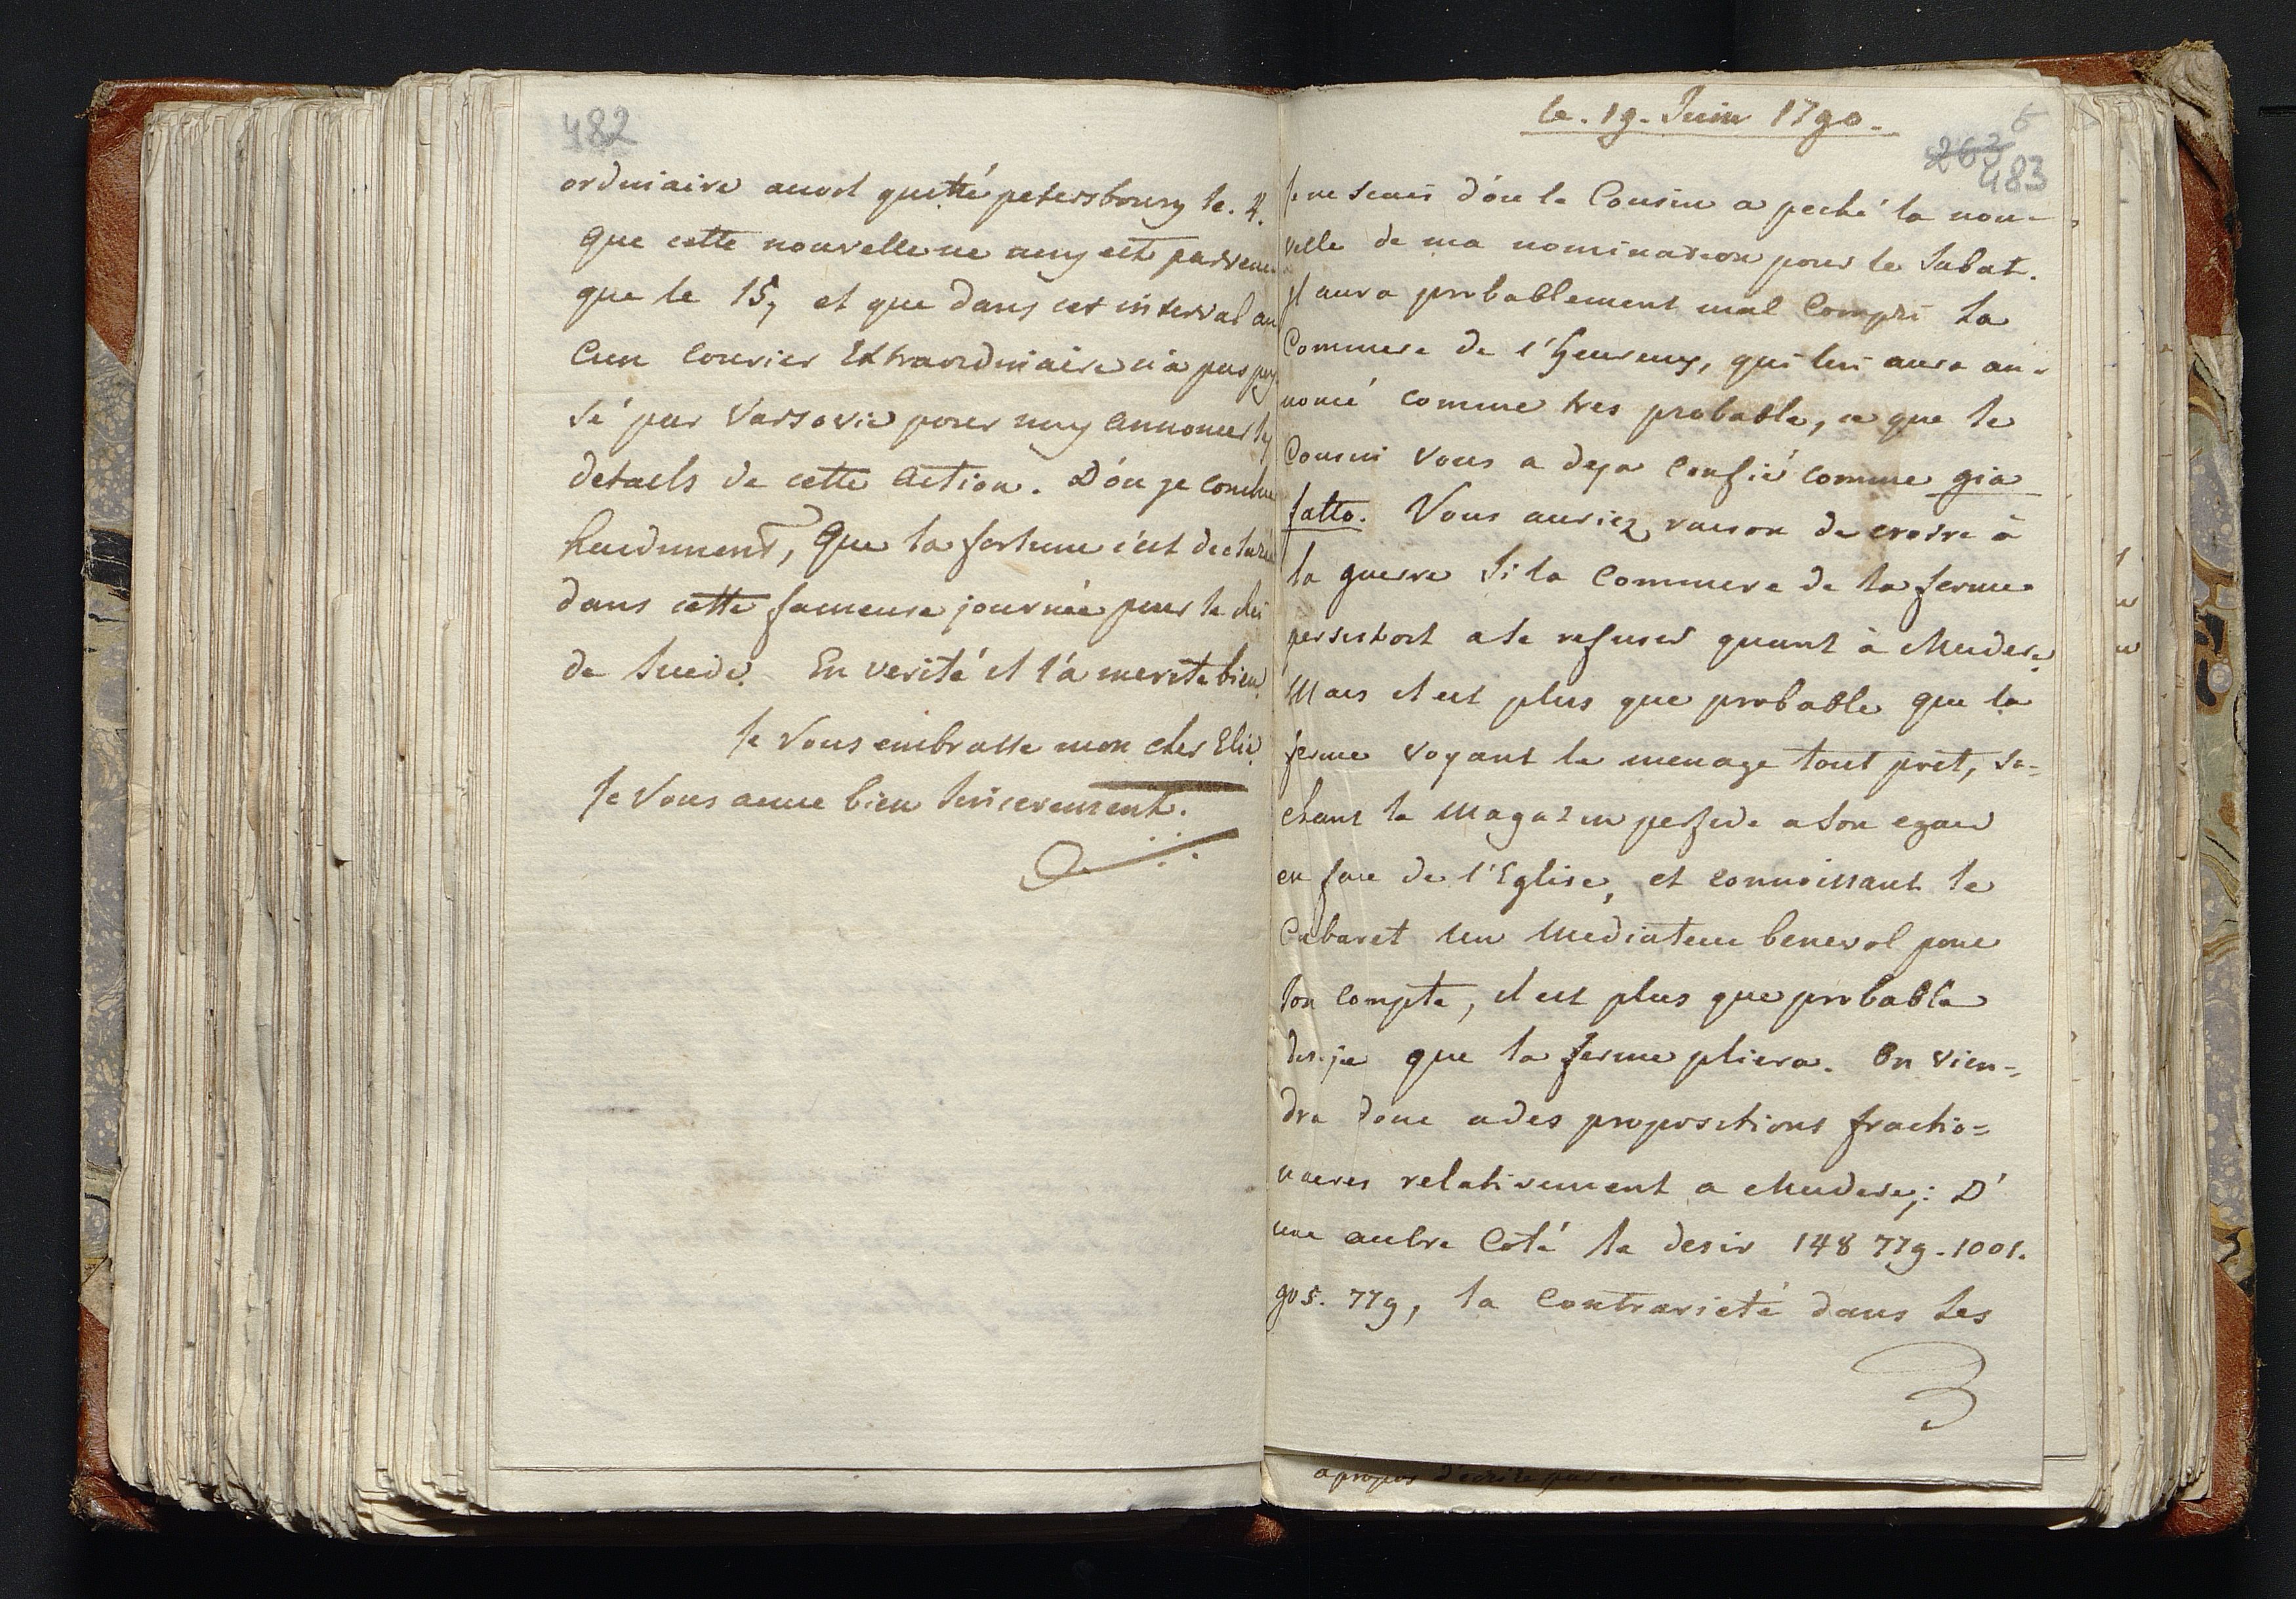 482
ordinaire avoit quitté petersbourg le. 4.
que cette nouvelle ne nous est parvenu
que le 15, et que dans cet interval au
cun courier Extraordinaire n'a pas pas
sé par Varsovie pour nous annoncer les
details de cette action. D'ou je conclue
hardiment, que la fortune s'est declarée
dans cette fameuse journée pour le Roi
de Suede. En verité il l'a merité bien.
Je Vous embrasse mon cher Elie.
Je Vous aime bien sincerement.
le. 19. Juin 1790.
6
263
483
Je ne scais d'ou le Cousin a peché la nou-
velle de ma nomination pour le Sabat.
Il aura probablement mal compri la
Commere de l'heureux, qui lui aura an-
noncé comme tres probable, ce que le
Cousin Vous a deja confié comme gia
fatto. Vous auriez raison de croire à
la guerre si la Commere de la ferme
persistoit a se refuser quant à Madere.
Mais il est plus que probable que la
ferme voyant le menage tout prêt, sa-
chant le Magazin perfide a son egard
en face de l'Eglise, et connoissant le
Cabaret un Mediateur benevol pour
son compte, il est plus que probable
dis-je que la ferme pliera. On vien-
dra donc a des propositions fractio-
naires relativement a Madere; D'
une autre Coté le desir 148 779. 1001.
905. 779, la contrarieté dans les
apropos d'ecrire